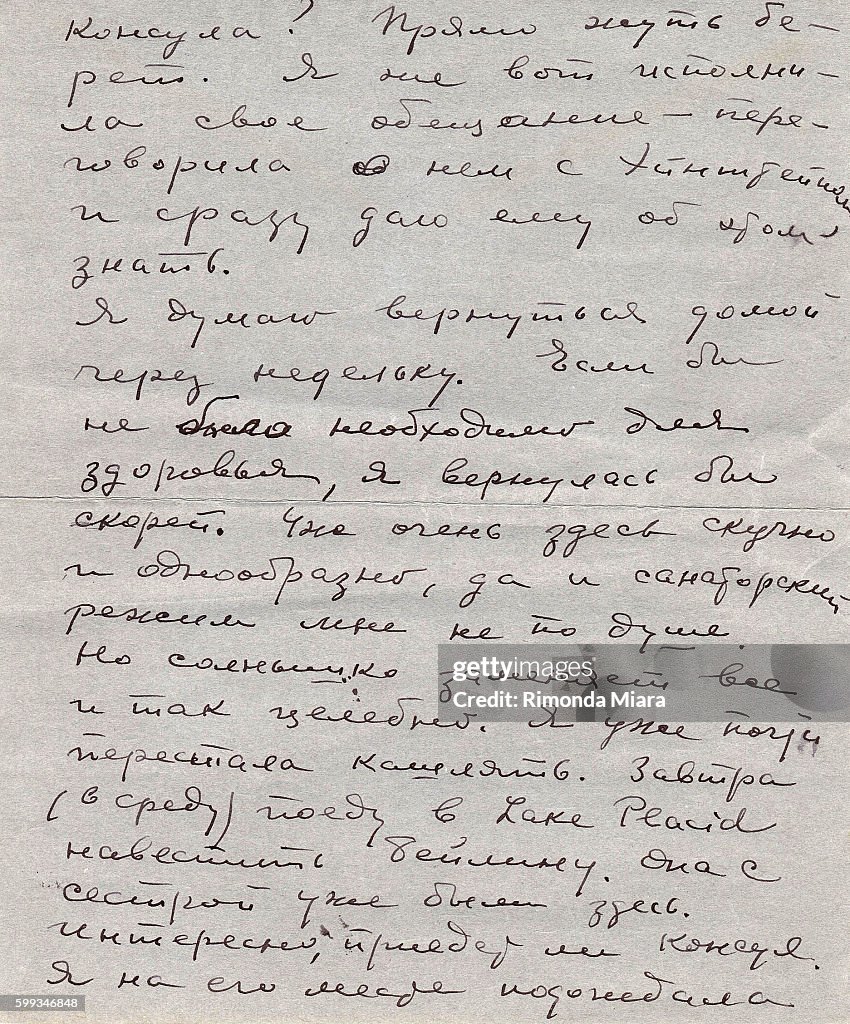 консула? Прямо жуть бе-
рет. Я же вот исполни-
ла свое обещание – пере-
говорила о нем с Эйнштейном
и сразу даю ему об этом
знать.
Я думаю вернуться домой
через недельку. Если бы
не было необходимо для
здоровья, я вернулась бы
скорей. Уж очень здесь скучно
и однообразно, да и санаторский
режим мне не по душе.
Но солнышко все
и так целебно. Я уже почти
перестала кашлять. Завтра
(в среду) поеду в Lake Placid
навестить Бейлину. Она с
сестрой уже были здесь.
Интересно, приедет ли консул.
Я на его месте подождала
gettyimages
Rimonda Miara
599346848